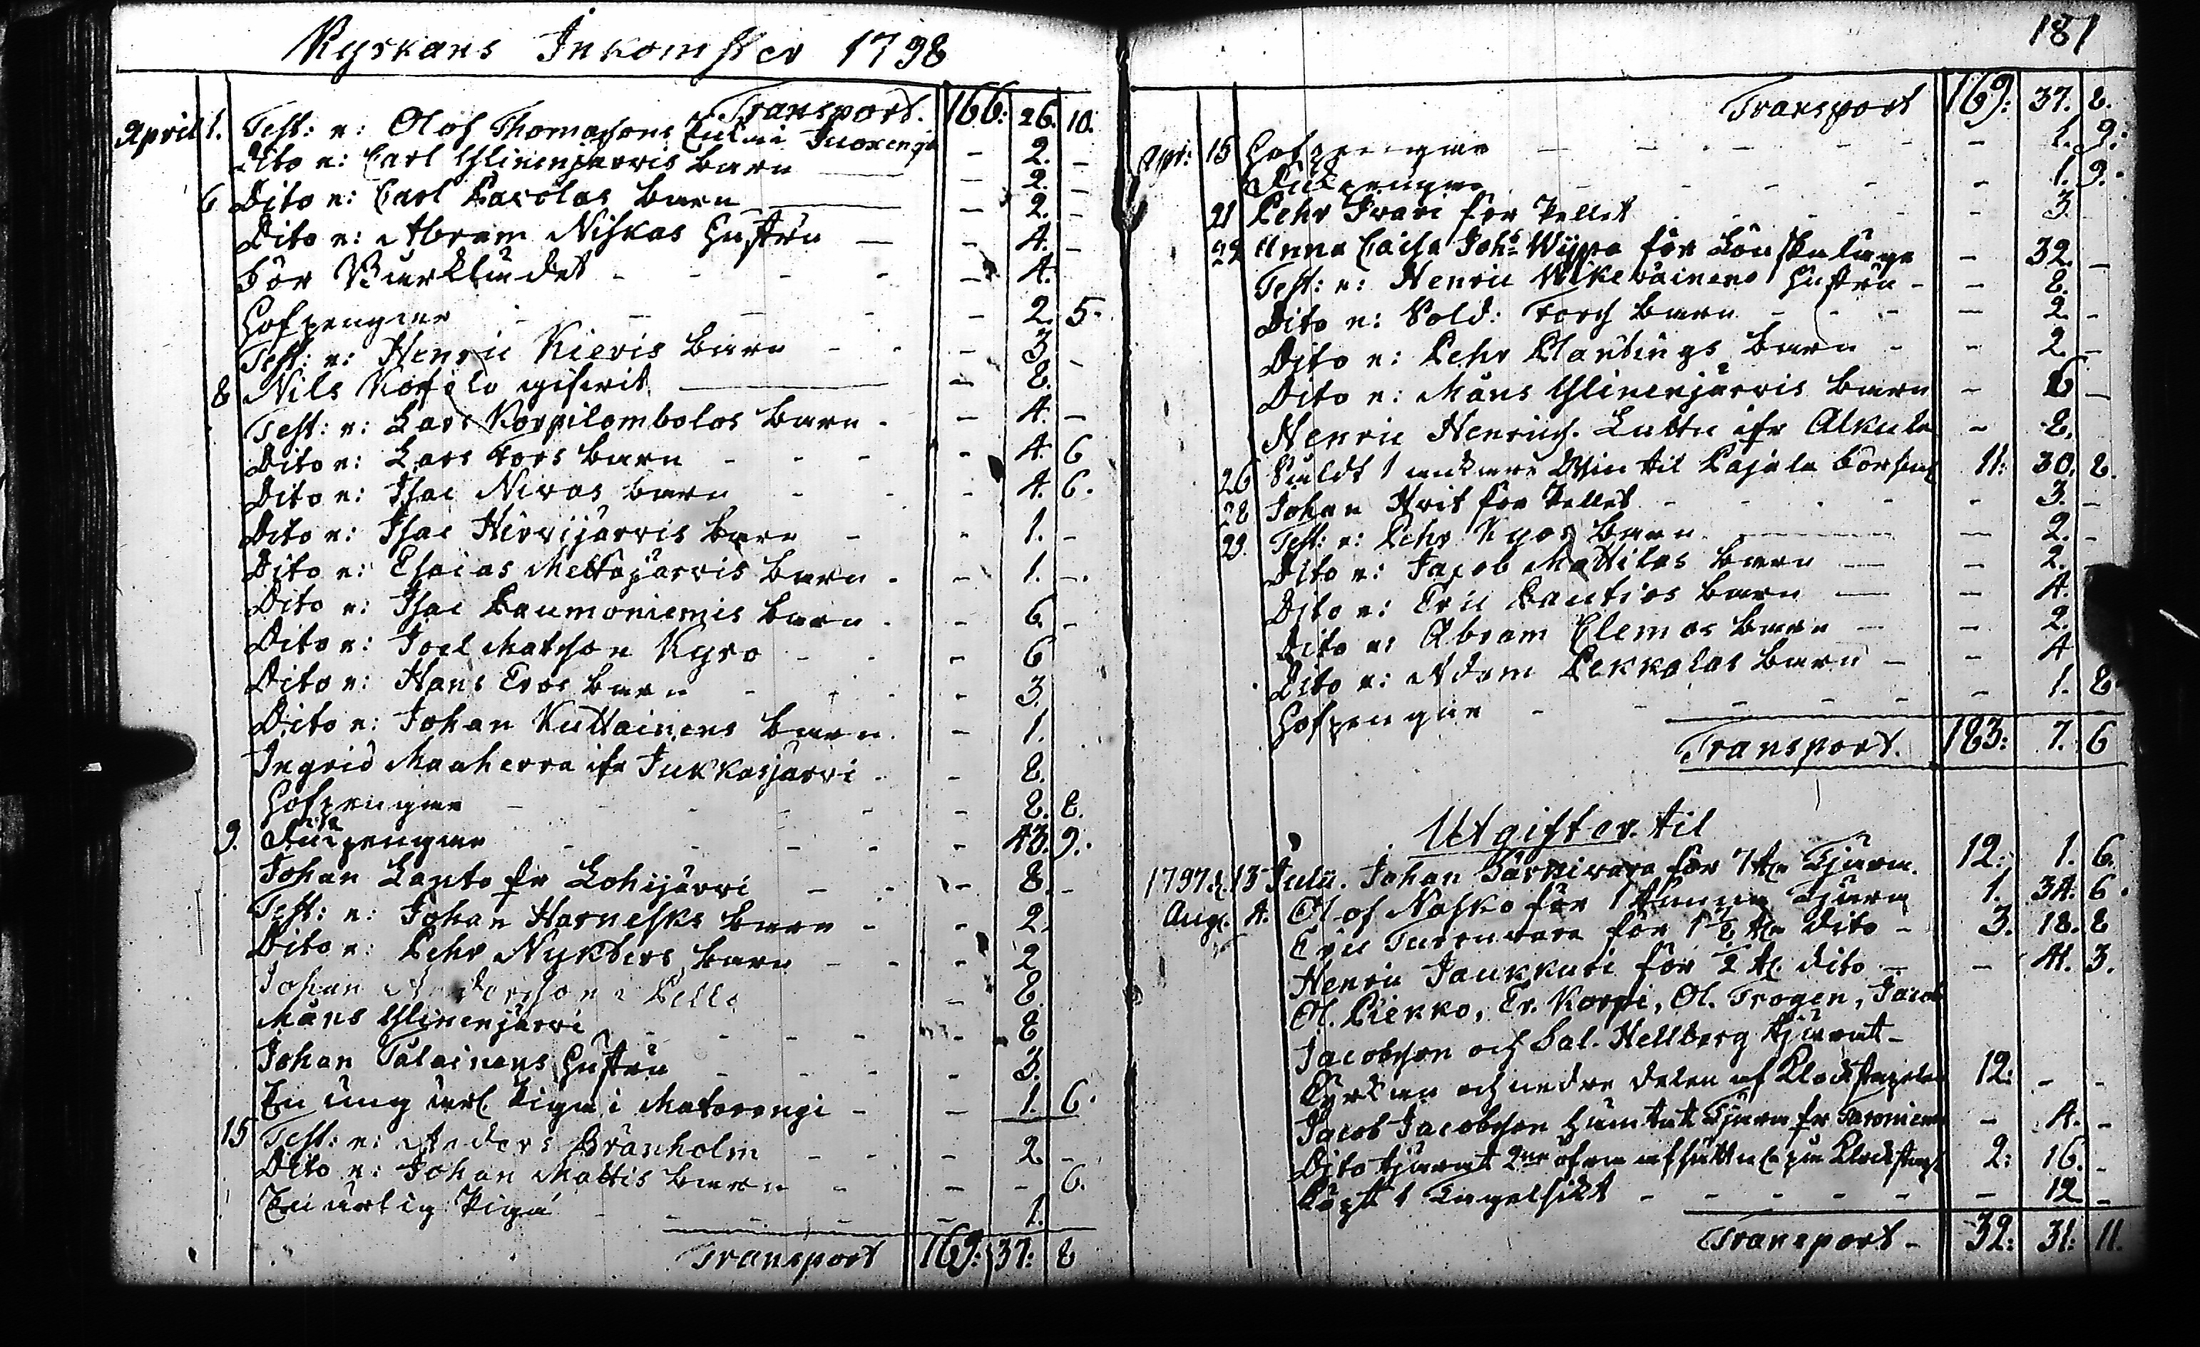 Kyrkans Inkomster 1798
Transport. 166: 26. 10.
April 1. Test: e: Olof Thomassons Enka i Juoxengi - 2. -
Dito e: Carl Ylinenjärvis barn - 2. -
6 Dito e: Carl Lavolas barn - 2. -
Dito e: Abram Niskas Hustru - 4. -
För Bårklädet - 4.
Hofpengar - 2. 5.
Test: e: Henric Kieris barn - 3 -
8 Nils Kofelo gifwit - 8.
Test: e: Lars Korpilombolos barn - 4. -
Dito e: Lars Fors barn - 4. 6
Dito e: Isac Niwas barn - 4. 6.
Dito e: Isac Hirvijärvis barn - 1. -
Dito e: Esaias Meltojärvis barn - 1. -
Dito e: Isac Laumoniemis barn - 6. -
Dito e: Joel Matsson Kyro - 6
Dito e: Hans Eros barn - 3
Dito e: Johan Kuttainens barn - 1.
Ingrid Maaherra ifr Jukkasjärvi - 8.
Hofpengar - 8. 8.
9. pengar - 43. 9.
Johan Lanto fr Lohijärvi - 8. -
Test: e: Johan Harnesks barn - 2.
Dito e: Pehr Nykters barn - 2
Johan Andersson i Pello - 8.
Måns Ylinenjärvi - 8
Johan Palainens Hustru - 3.
En ung ärl. Piga i Matorengi - 1. 6.
15 Test: e: Anders Granholm - 2 -
Dito e: Johan Mattis barn - - 6.
En ärlig Piga - 1.
Transport 169: 37: 8
181
Transport 169: 37. 8.
Apr: 15 Hofpengar - 1. 9.
pengar - 1. 9.
21 Pehr Ivari för Pellet - 3.
22 Anna Caisa Johs Wippa för - 32. -
Test: e: Henric Mikewainens Hustru - 8.
Dito e: Sold: Fors barn - 2 -
Dito e: Pehr Plantings barn - 2. -
Dito e: Måns Ylinenjärvis barn - 6 -
Henric Henrics. Luttu ifr Alkula - 8.
26 Såldt 1 ankare Win til Pajala 11: 30. 8.
28 Johan Krit för Pellet - 3. -
29 Test: e: Pehr Kyos barn - 2. -
Dito e: Jacob Mattilas barn - 2.
Dito e: Eric Lantios barn - 4.
Dito e: Abram Clemos barn - 2.
Dito e: Adam Pekkalas barn - 4
Hofpengar - 1. 8
Transport. 183: 7. 6
Utgifter til
1797 d. 13 Julii. Johan Särkiwara för 7 Tjära. 12: 1. 6.
Aug. 4. Olof Nasko för 1 Tunna Tjära 1. 34. 6.
Eric Turunvara för 1½ Dito - 3. 18. 8
Henric Jaukkuri för ½ dito - - 41. 3.
Ol. Piekko, Er. Korpi, Ol. Trogen, Jacob
Jacobsson och Sal. Hellberg tjärat
Kyrkan och nedre delen af Klockstapelen 12: - -
Jacob Jacobsson hämtat Tjära fr - 4. -
Dito tjärat 2ne öfra afsättn på Klockstap 2: 16. -
Köpt 1 - 12 -
Transport - 32: 31: 11.